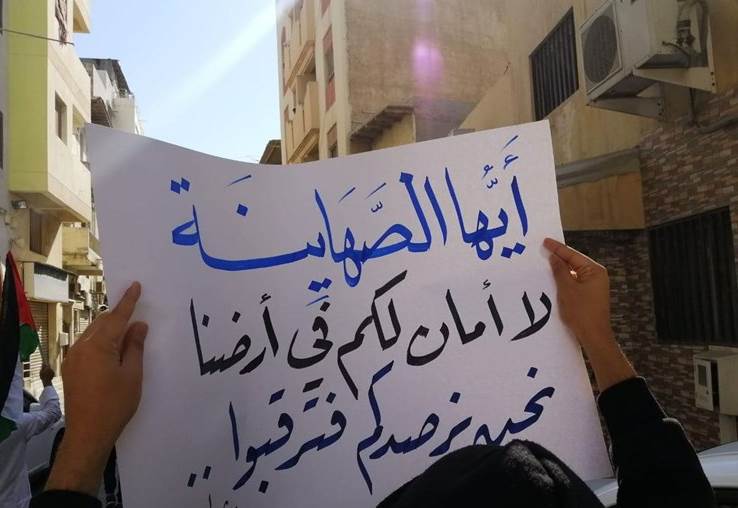 أَيُّها الصَّهَايِنَة
لا أمان لكم في أرضنا
نحن نرصدكم فترقبوا ..